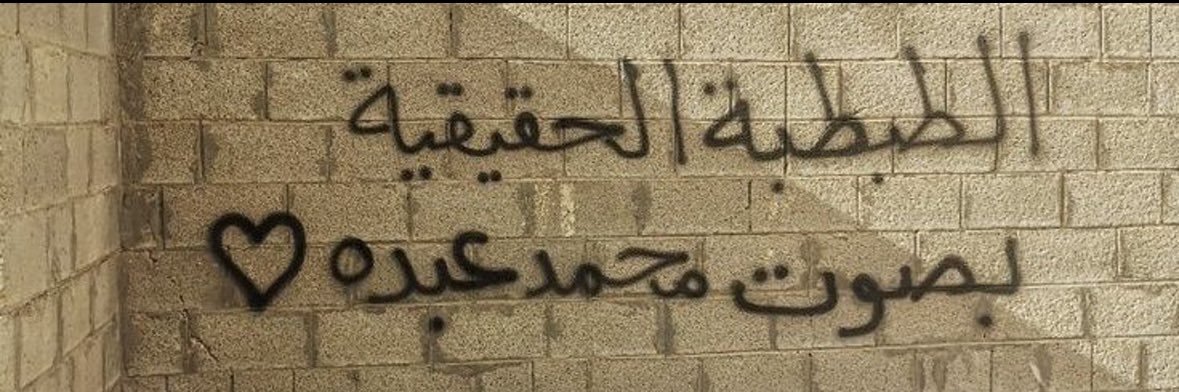 الطبطبة الحقيقية
بصوت محمد عبده ♡